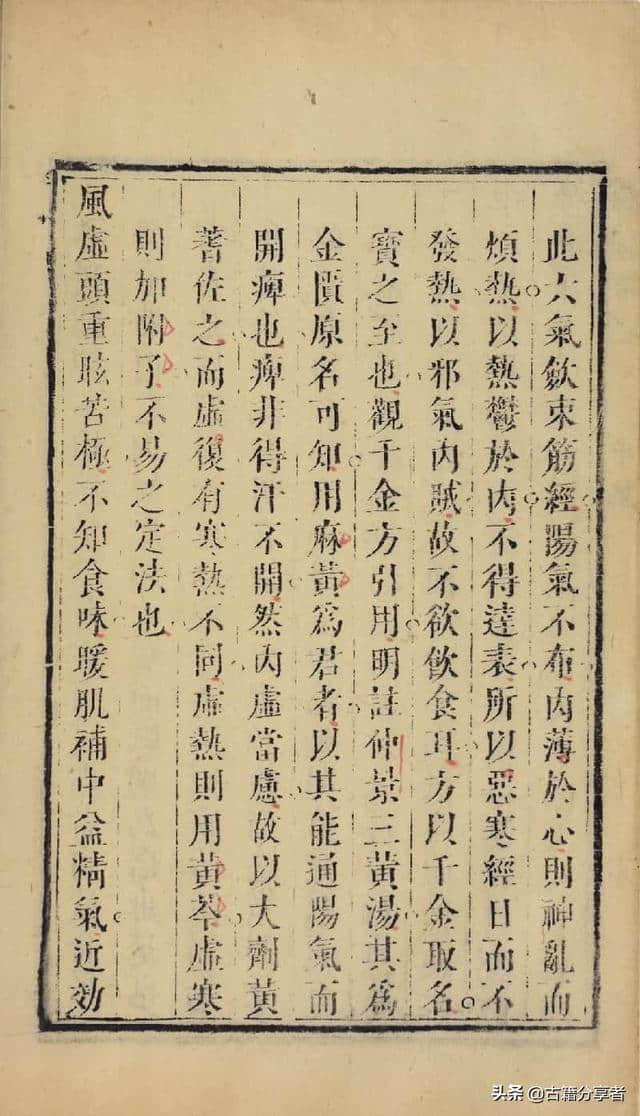 此六氣歛束筋經陽氣不布內薄於心則神亂而
煩熱以熱鬱於內不得達表所以惡寒經日而不
發熱以邪氣內賊故不欲飲食耳方以千金取名
寶之至也觀千金方引用明註仲景三黃湯其為
金匱原名可知用麻黃為君者以其能通陽氣而
開痺也痺非得汗不開然內虛當慮故以大劑黃
蓍佐之而虛復有寒熱不同虛熱則用黃芩虛寒
則加附子不易之定法也
風虛頭重眩苦極不知食味暖肌補中益精氣近効
头条@古籍分享者